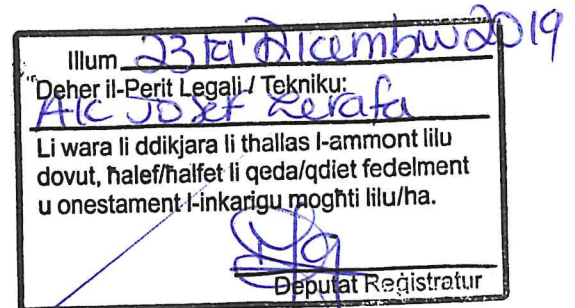 Illum 23 ta' Dicembru 2019
Deher il-Perit Legali / Tekniku:
AIC Josef Zerafa
Li wara li ddikjara li tħallas l-ammont lilu
dovut, ħalef/ħalfet li qeda/qdiet fedelment
u onestament l-inkarigu mogħti lilu/ha.
Deputat Reġistratur